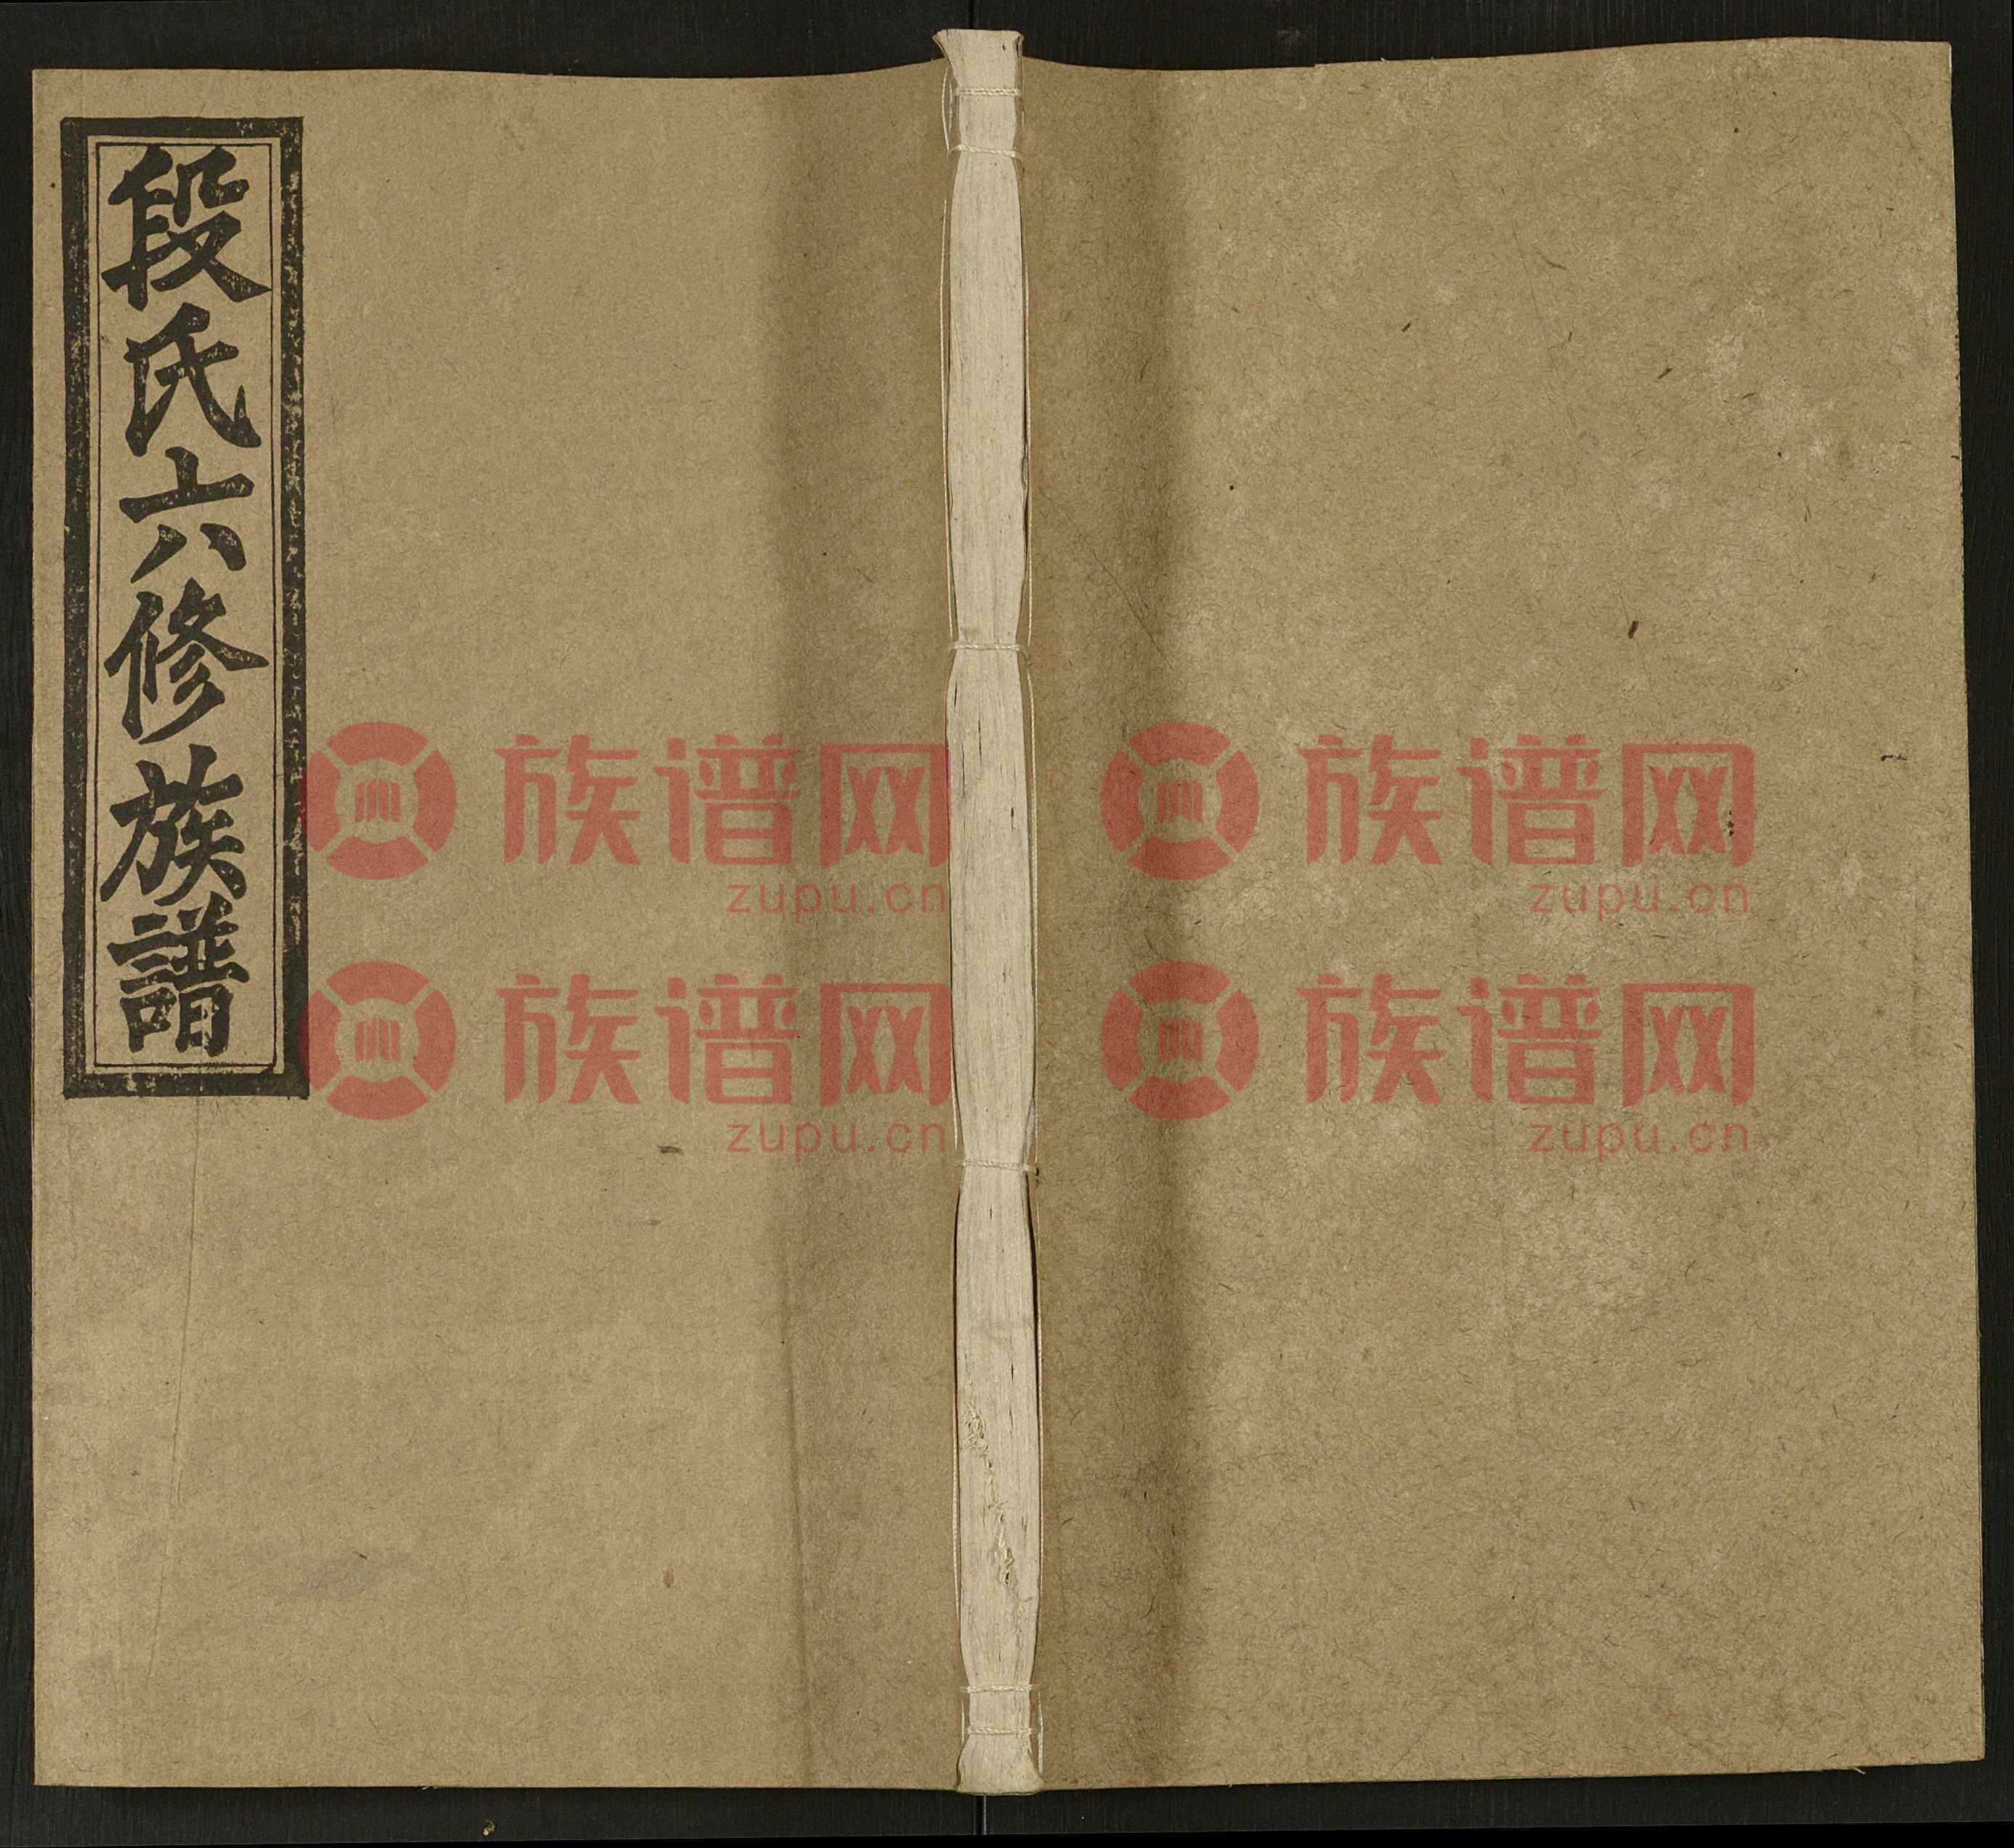 段氏六修族譜
族谱网
zupu.cn
族谱网
zupu.cn
族谱网
zupu.cn
族谱网
zupu.cn